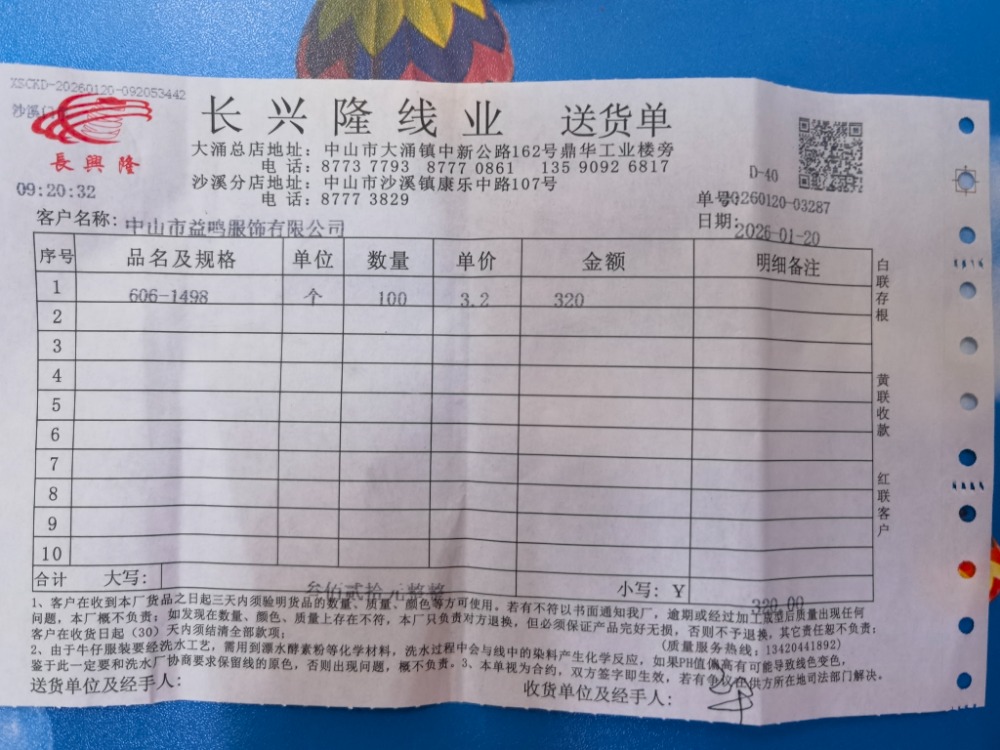 XSCKD-20260120-092053442
沙溪
長興隆
长兴隆线业 送货单
大涌总店地址：中山市大涌镇中新公路162号鼎华工业楼旁
电话：8773 7793 8777 0861 135 9092 6817
沙溪分店地址：中山市沙溪镇康乐中路107号
电话：8777 3829
09:20:32
D-40
单号：20260120-03287
客户名称：中山市益鸣服饰有限公司
日期：2026-01-20
序号 品名及规格 单位 数量 单价 金额 明细备注
1 606-1498 个 100 3.2 320
2
3
4
5
6
7
8
9
10
合计 大写： 叁佰贰拾元整整 小写：Y 320.00
白联存根
黄联收款
红联客户
1、客户在收到本厂货品之日起三天内须验明货品的数量、质量、颜色等方可使用。若有不符以书面通知我厂，逾期或经过加工成型后质量出现任何
问题，本厂概不负责；如发现在数量、颜色、质量上存在不符，本厂只负责对方退换，但必须保证产品完好无损，否则不予退换，其它责任恕不负责；
客户在收货日起（30）天内须结清全部款项； （质量服务热线：13420441892）
2、由于牛仔服装要经洗水工艺，需用到漂水酵素粉等化学材料，洗水过程中会与线中的染料产生化学反应，如果PH值偏高有可能导致线色变色，
鉴于此一定要和洗水厂协商要求保留线的原色，否则出现问题，概不负责。3、本单视为合约，双方签字即生效，若有争议在供方所在地司法部门解决。
送货单位及经手人： 收货单位及经手人：